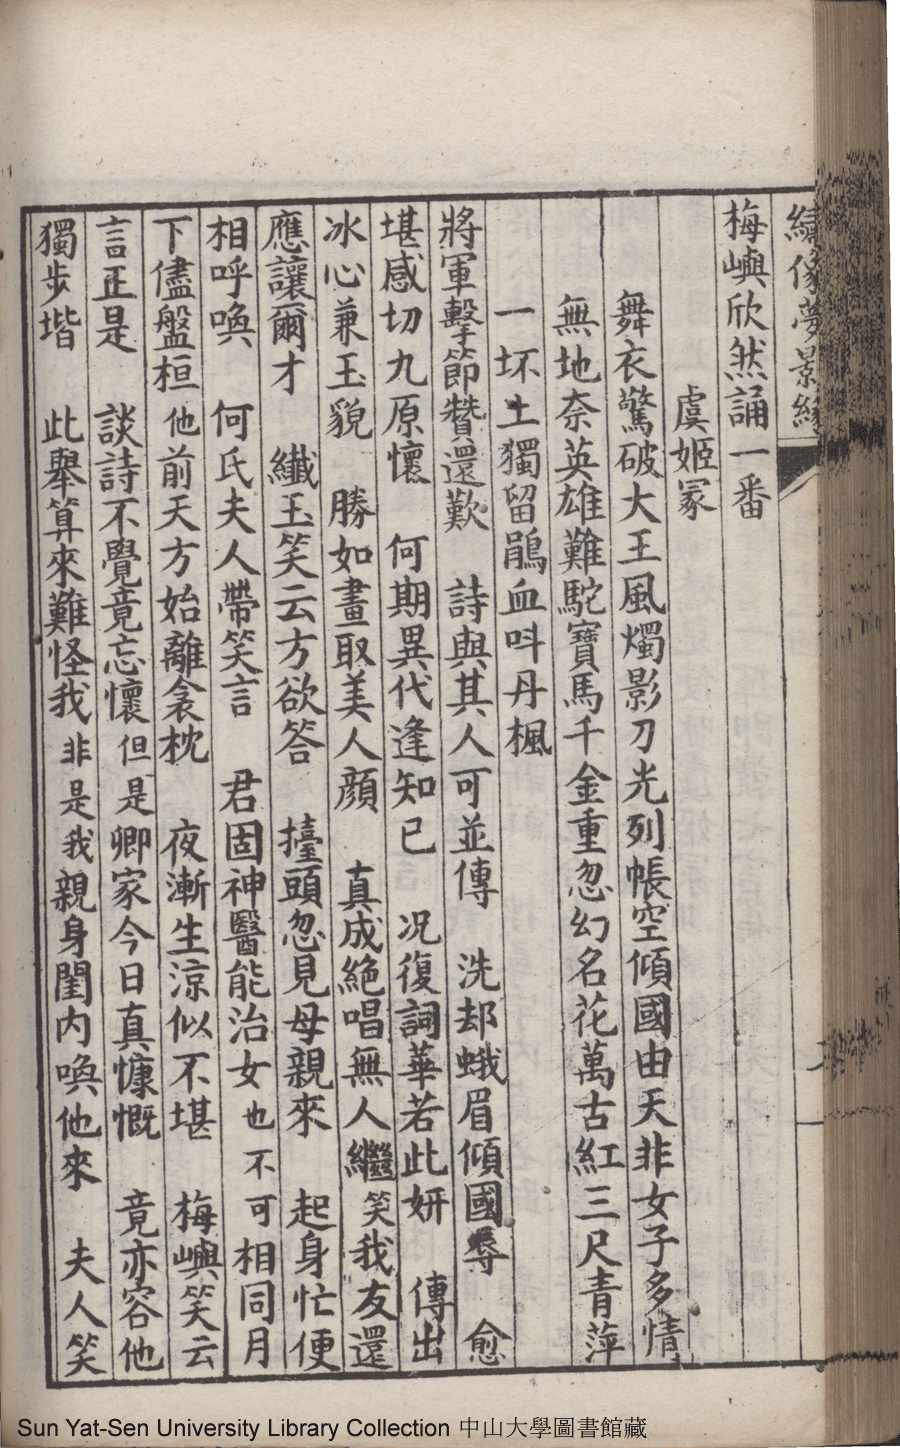 繡像夢影緣
梅嶼欣然誦一番
虞姬冢
舞衣驚破大王風燭影刀光列帳空傾國由天非女子多情
無地奈英雄難駝寶馬千金重忽幻名花萬古紅三尺青萍
一坏土獨留鵑血呌丹楓
將軍擊節贊還歎　詩與其人可並傳　洗却蛾眉傾國辱　愈
堪感切九原懷　何期異代逢知己　况復詞華若此妍　傳出
冰心兼玉貌　勝如畫取美人顔　真成絶唱無人繼笑我友還
應讓爾才　纎玉笑云方欲答　擡頭忽見母親來　起身忙便
相呼喚　何氏夫人帶笑言　君固神醫能治女也不可相同月
下儘盤桓他前天方始離衾枕　夜漸生涼似不堪　梅嶼笑云
言正是　談詩不覺竟忘懷但是卿家今日真慷慨　竟亦容他
獨步堦　此舉算來難怪我非是我親身閨内喚他來　夫人笑
Sun Yat-Sen University Library Collection 中山大學圖書館藏